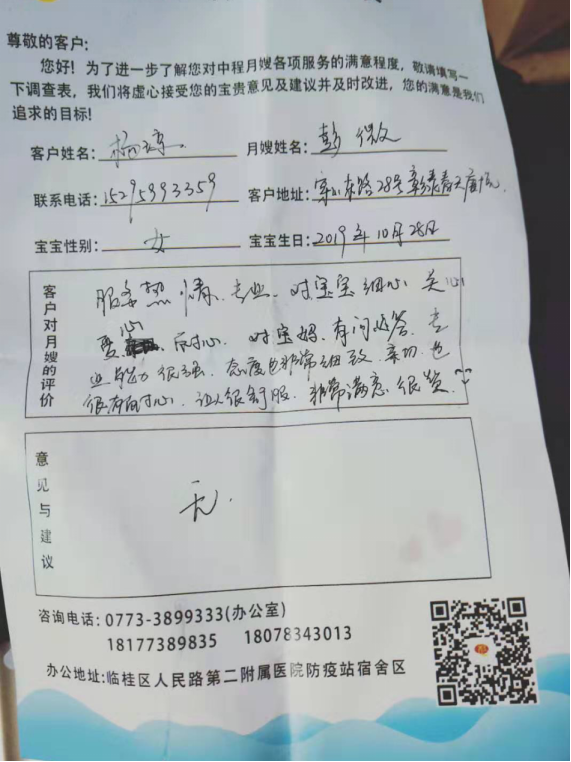 尊敬的客户:
您好！为了进一步了解您对中程月嫂各项服务的满意程度，敬请填写一
下调查表，我们将虚心接受您的宝贵意见及建议并及时改进，您的满意是我们
追求的目标!
客户姓名: 杨 月嫂姓名: 彭微
联系电话: 15295993359 客户地址: 路28号彰泰春天
宝宝性别: 女 宝宝生日: 2019年10月28日
客户对月嫂的评价
服务热情、专业、对宝宝细心关心
爱心 耐心、对宝妈、有问必答、专
业能力很强、态度也非常细致、亲切、也
很有耐心、让人很舒服、非常满意 很赞
意见与建议
无.
咨询电话: 0773-3899333(办公室)
18177389835 18078343013
办公地址:临桂区人民路第二附属医院防疫站宿舍区